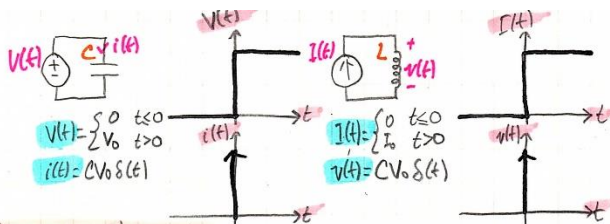 V(t)
C
i(t)
V(t)
V(t)={0 t≤0
V₀ t>0
i(t)=CV₀δ(t)
t
i(t)
t
I(t)
L
+
v(t)
-
I(t)
I(t)={0 t≤0
I₀ t>0
v(t)=CV₀δ(t)
t
v(t)
t